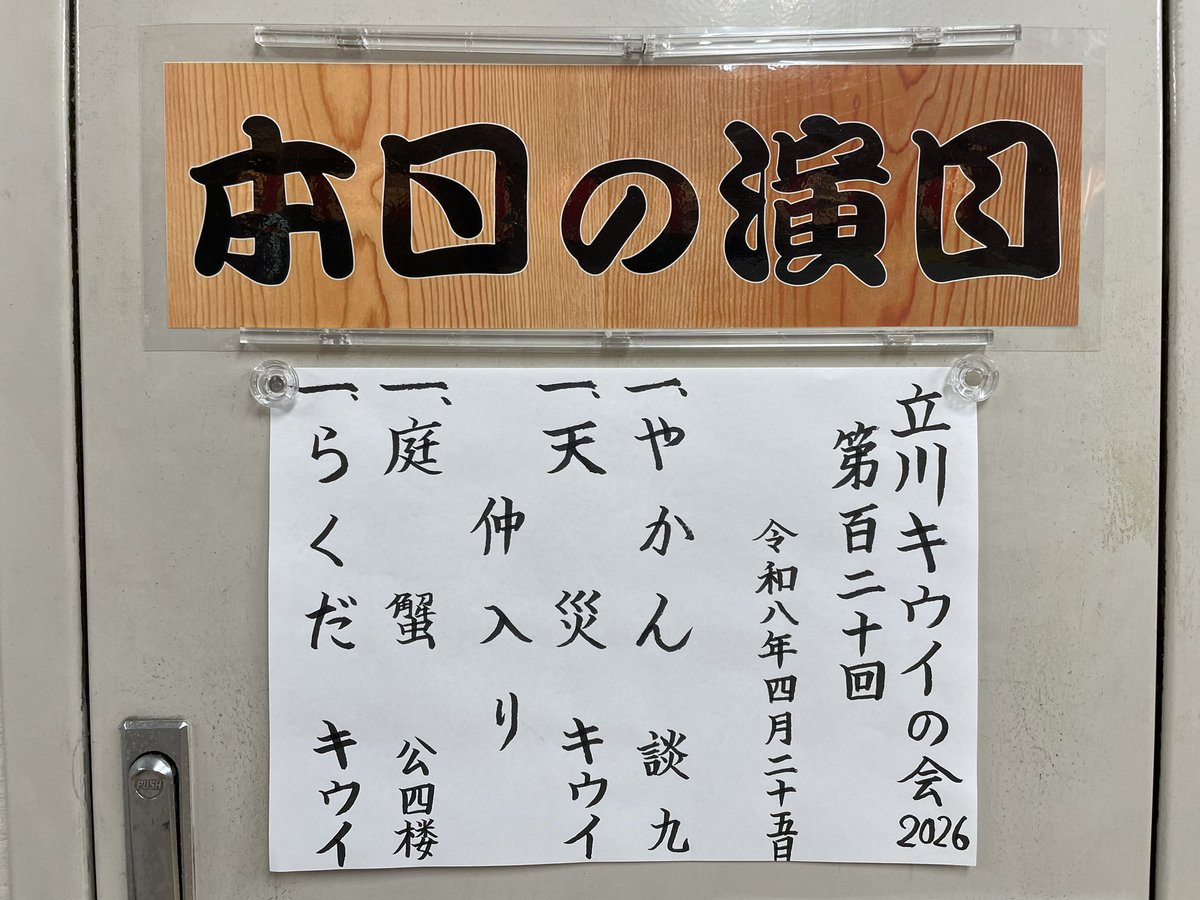 本日の演目
立川キウイの会2026
第百二十回
令和八年四月二十五日
一、やかん 談九
一、天災 キウイ
仲入り
一、庭蟹 公四楼
一、らくだ キウイ
PUSH